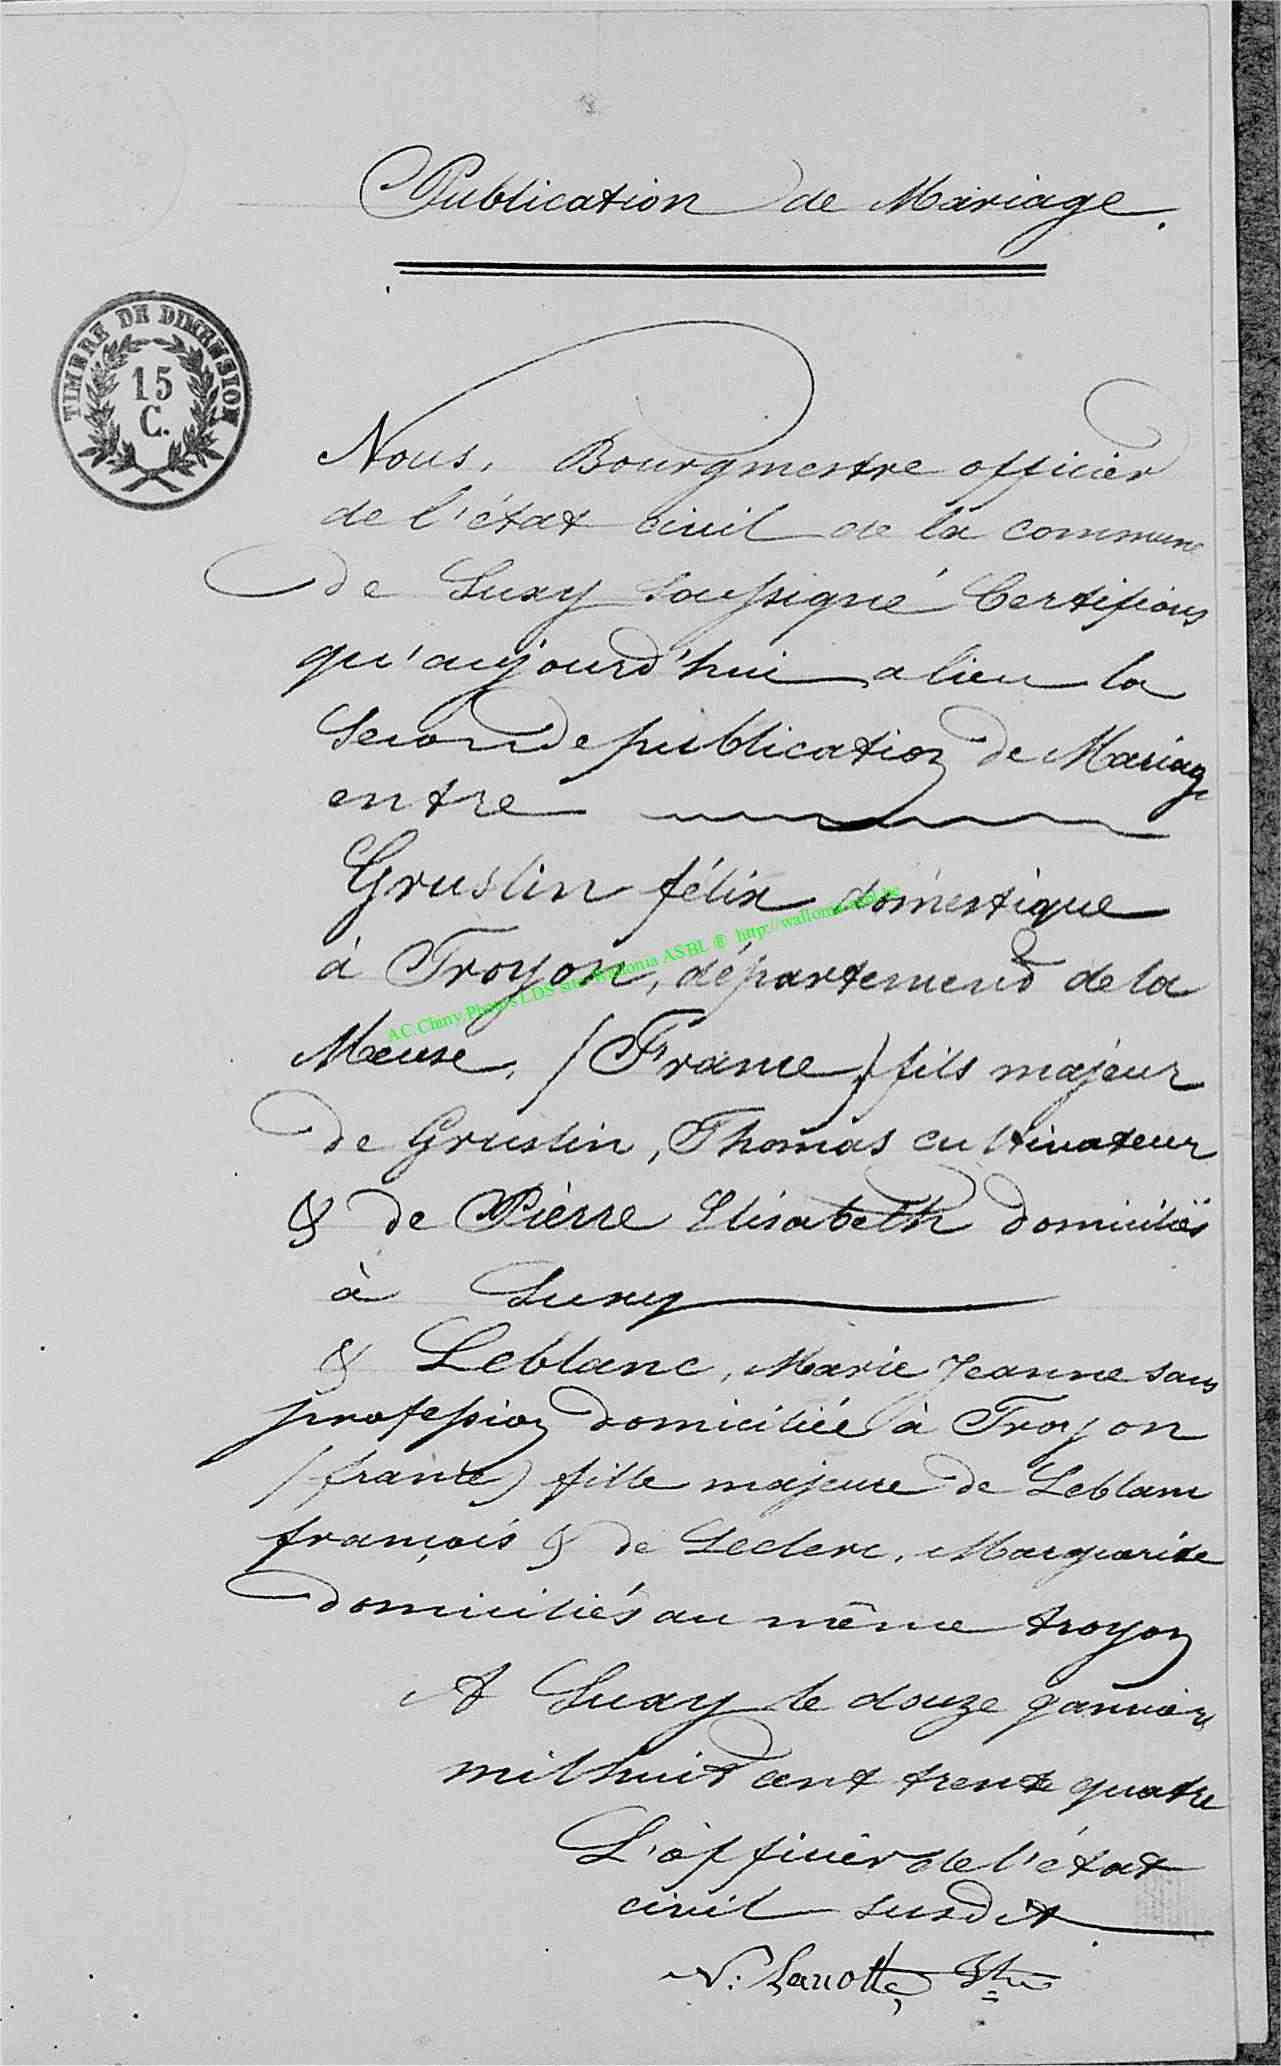 Publication de Mariage.
TIMBRE DE DIMENSION
15
C.
Nous, Bourgmestre officier
de l'état civil de la commune
de Suxy Soussigné Certifions
qu'aujourd'hui a lieu la
Seconde publication de Mariage
entre
Gruslin félix domestique
à Troyon, département de la
AC.Chiny.Photo's LDS sur Wallonia ASBL ® http://wallonia-asbl.be
Meuse, (France) fils majeur
de Gruslin, Thomas cultivateur
& de Pièrre Elisabeth domiciliés
à Suxy
& Leblanc, Marie Jeanne sans
profession domiciliée à Troyon
(france) fille majeure de Leblanc
françois & de Leclerc, Marguerite
domiciliés au même troyon
A Suxy le douze janvier
mil huit cent trente quatre
L'officier de l'état
civil susdit
N: Lanotte,